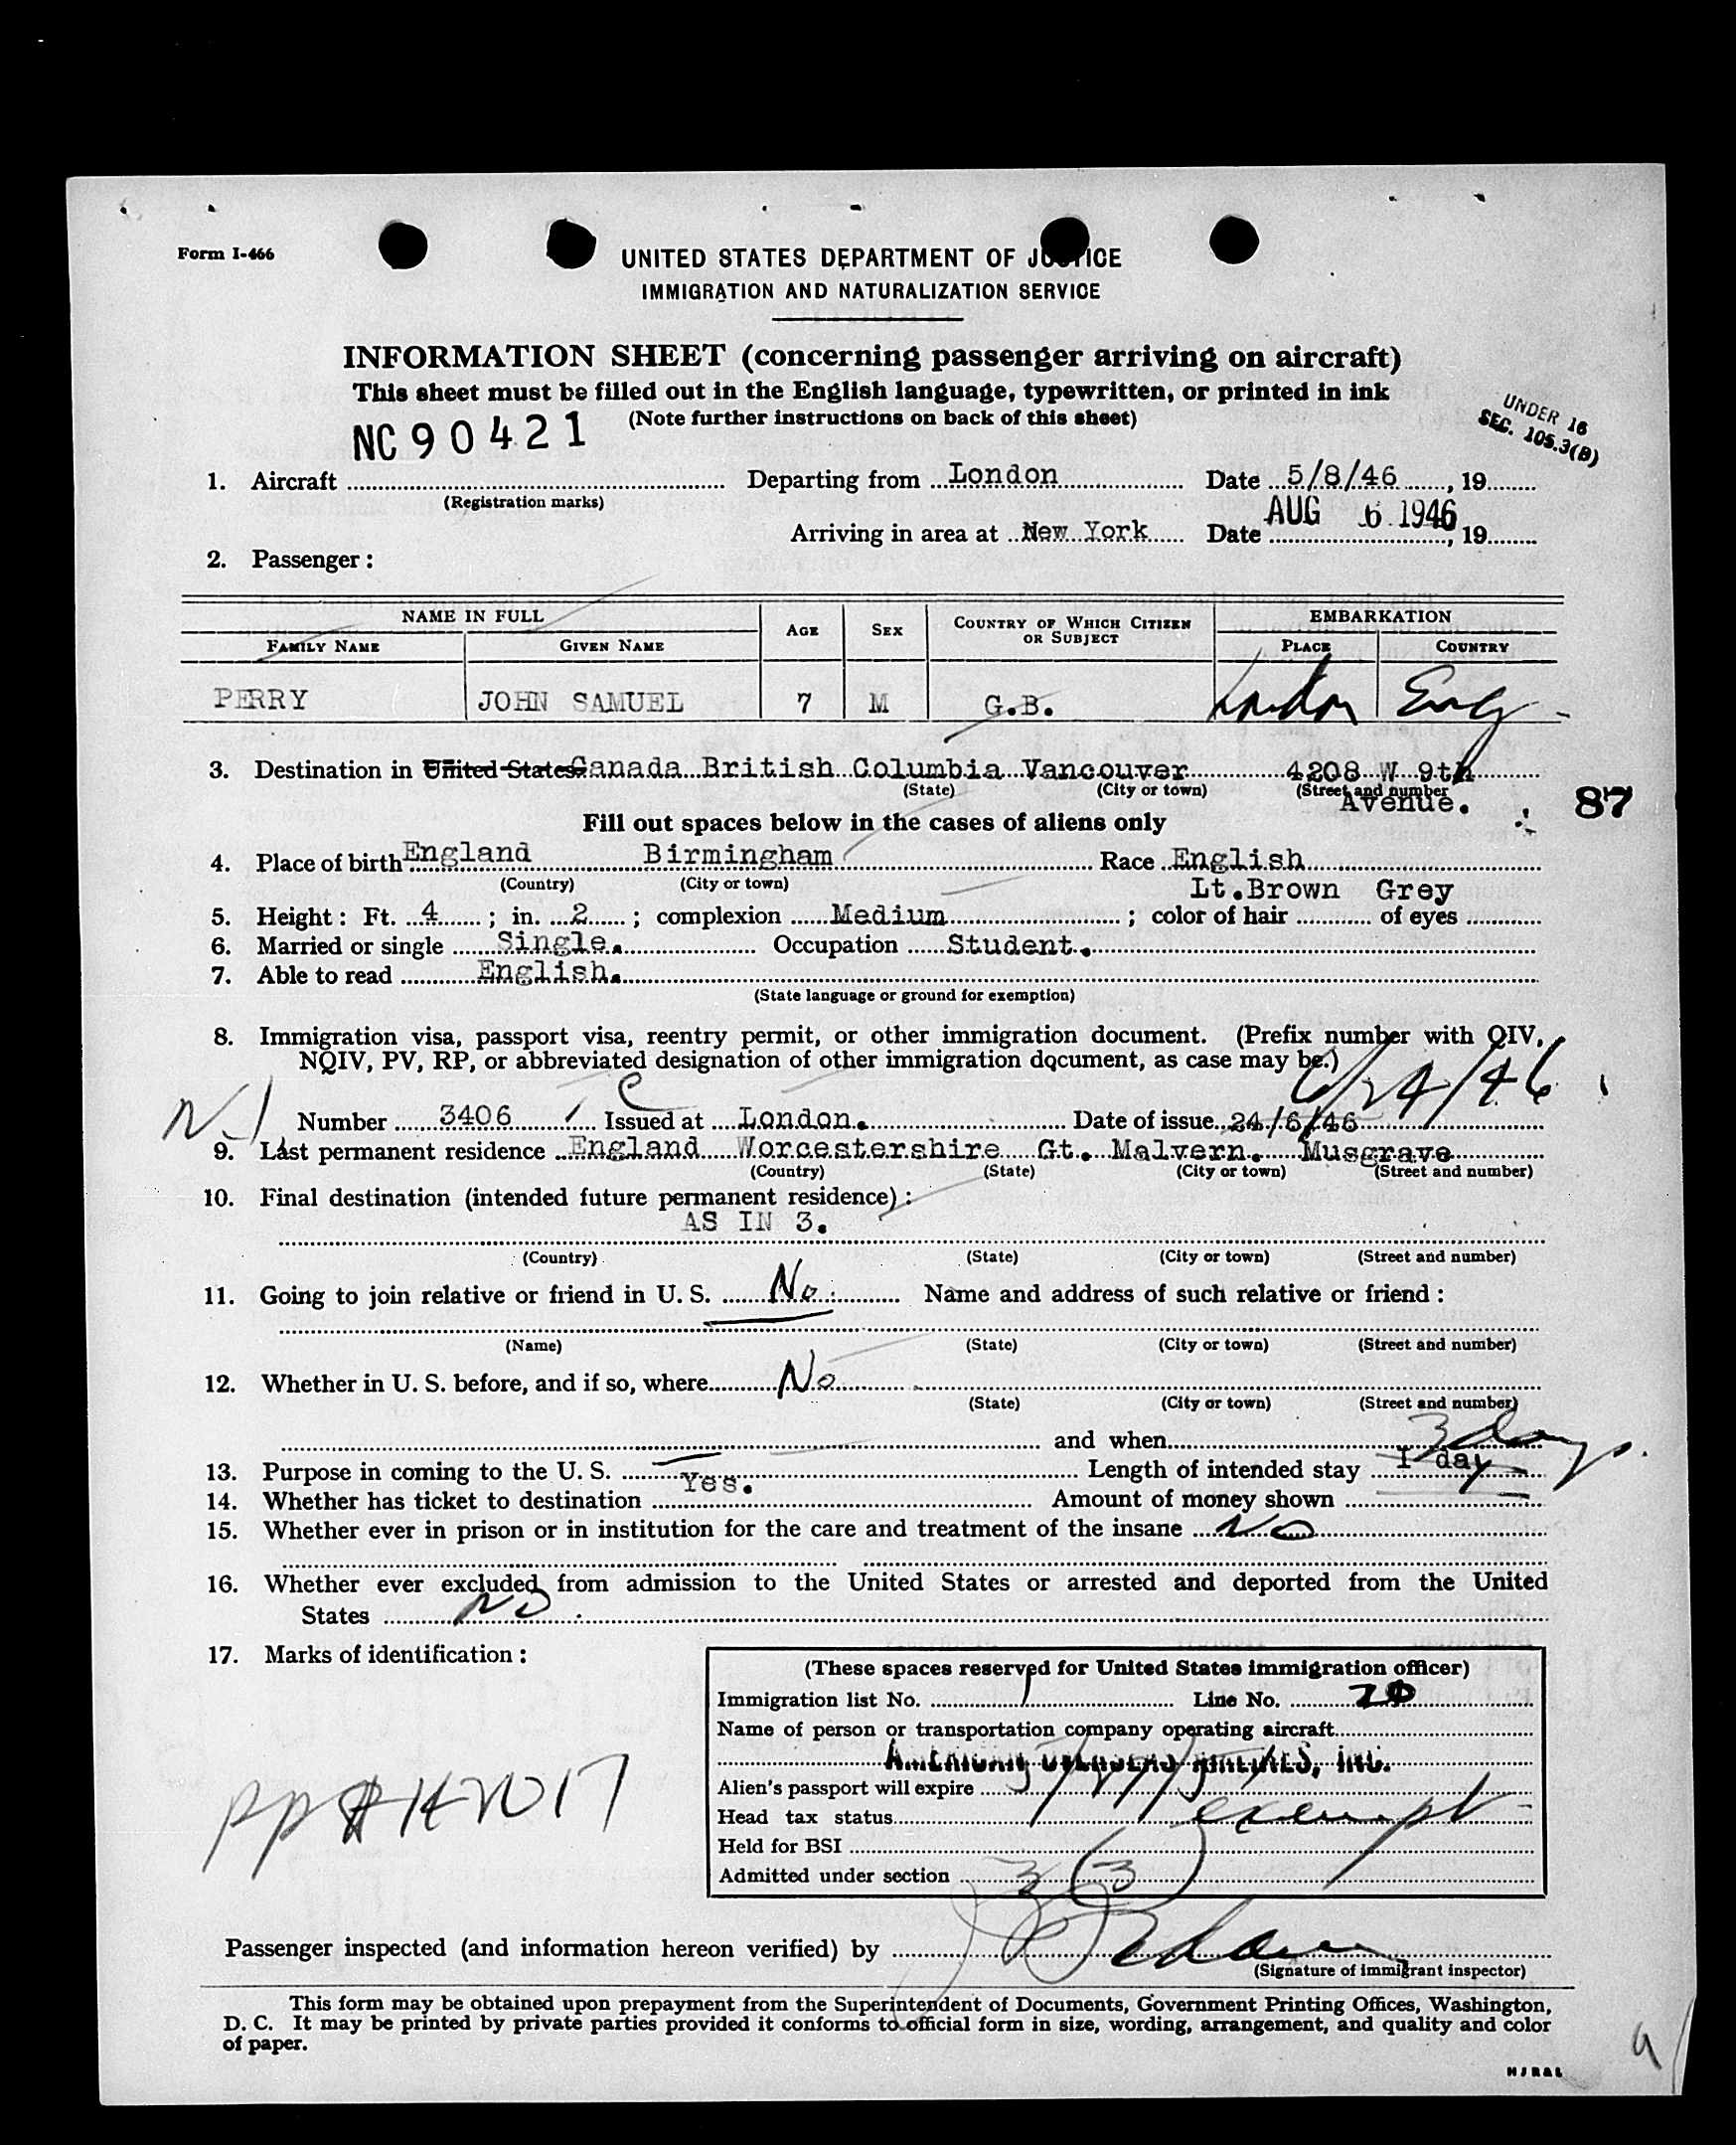 Form I-466
UNITED STATES DEPARTMENT OF JUSTICE
IMMIGRATION AND NATURALIZATION SERVICE
INFORMATION SHEET (concerning passenger arriving on aircraft)
This sheet must be filled out in the English language, typewritten, or printed in ink
(Note further instructions on back of this sheet)
UNDER 16
SEC. 105.3(B)
NC90421
1. Aircraft Departing from London Date 5/8/46, 19
(Registration marks)
AUG 6 1946
Arriving in area at New York Date , 19
2. Passenger:
NAME IN FULL AGE SEX COUNTRY OF WHICH CITIZEN OR SUBJECT EMBARKATION
FAMILY NAME GIVEN NAME PLACE COUNTRY
PERRY JOHN SAMUEL 7 M G.B. London Eng
3. Destination in United States Canada British Columbia Vancouver 4208 W 9th
(State) (City or town) (Street and number
Avenue.
87
Fill out spaces below in the cases of aliens only
4. Place of birth England Birmingham Race English
(Country) (City or town)
Lt.Brown Grey
5. Height: Ft. 4; in. 2; complexion Medium; color of hair of eyes
6. Married or single Single. Occupation Student.
7. Able to read English.
(State language or ground for exemption)
8. Immigration visa, passport visa, reentry permit, or other immigration document. (Prefix number with QIV,
NQIV, PV, RP, or abbreviated designation of other immigration document, as case may be.)
6/24/46
Number 3406 Issued at London. Date of issue 24/6/46
9. Last permanent residence England Worcestershire Gt. Malvern. Musgrave
(Country) (State) (City or town) (Street and number)
10. Final destination (intended future permanent residence):
AS IN 3.
(Country) (State) (City or town) (Street and number)
11. Going to join relative or friend in U. S. No Name and address of such relative or friend:
(Name) (State) (City or town) (Street and number)
12. Whether in U. S. before, and if so, where No
(State) (City or town) (Street and number)
and when
3 days.
13. Purpose in coming to the U. S. Length of intended stay I day
14. Whether has ticket to destination Yes. Amount of money shown
15. Whether ever in prison or in institution for the care and treatment of the insane No
16. Whether ever excluded from admission to the United States or arrested and deported from the United
States No
17. Marks of identification:
(These spaces reserved for United States immigration officer)
Immigration list No. 1 Line No.
Name of person or transportation company operating aircraft
AMERICAN OVERSEAS AIRLINES, INC.
Alien's passport will expire
Head tax status exempt
Held for BSI
Admitted under section 3 (3)
Passenger inspected (and information hereon verified) by
(Signature of immigrant inspector)
This form may be obtained upon prepayment from the Superintendent of Documents, Government Printing Offices, Washington,
D. C. It may be printed by private parties provided it conforms to official form in size, wording, arrangement, and quality and color
of paper.